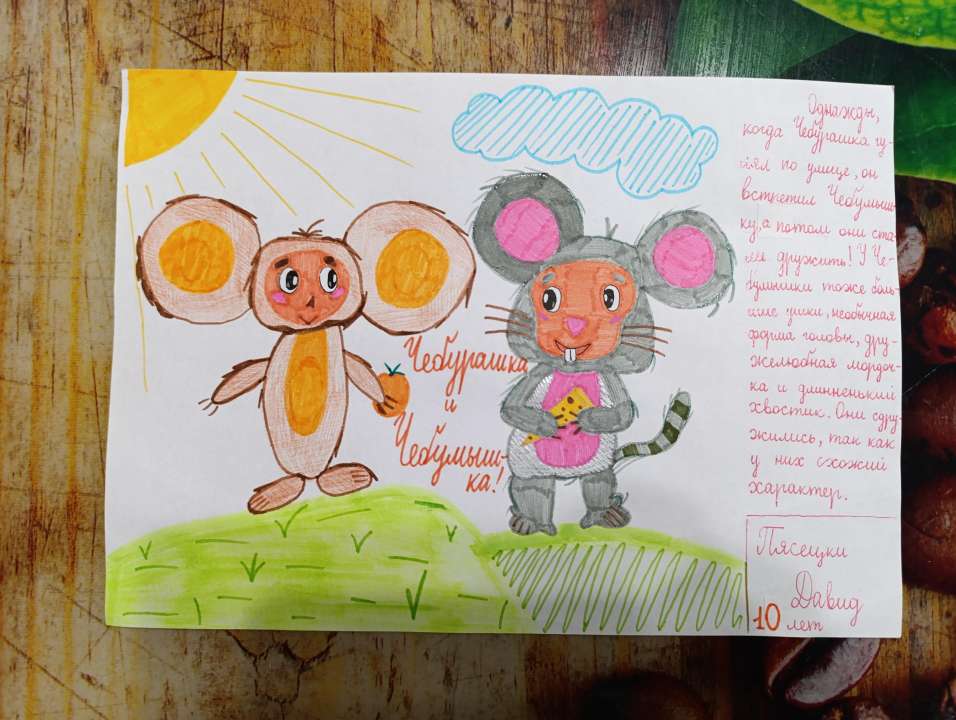 Чебурашка
и
Чебумыш-
ка!
Однажды,
когда Чебурашка гу-
лял по улице, он
встретил Чебумыш-
ку, а потом они ста-
ли дружить! У Че-
бумышки тоже боль-
шие ушки, необычная
форма головы, дру-
желюбная мордоч-
ка и длинненький
хвостик. Они сдру-
жились, так как
у них схожий
характер.
Пясецки
Давид
10 лет